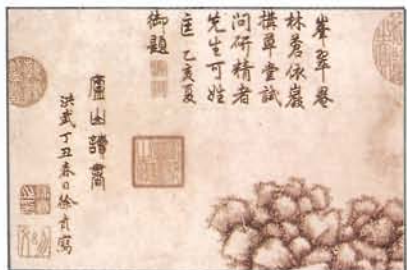 峯翠
林蒼依巖
搆草堂試
問研精者
先生可姓
匡 乙亥夏
御題
廬山讀書
洪武丁丑春日徐賁寫